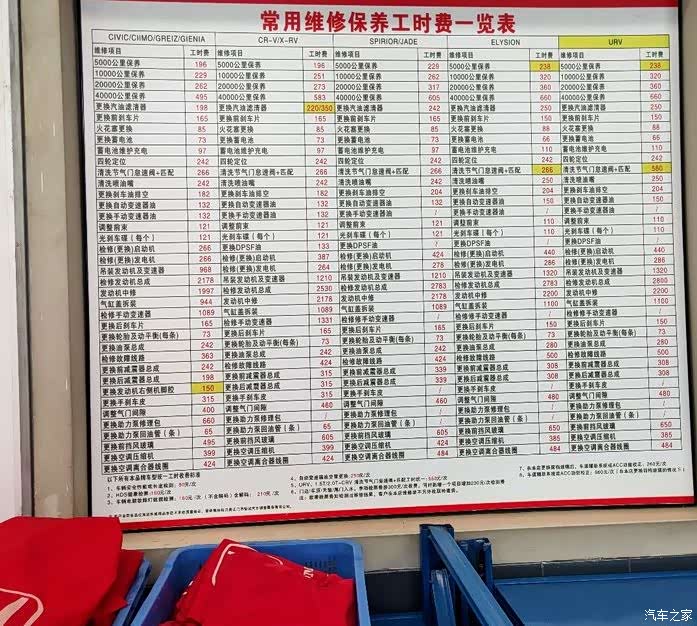 常用维修保养工时费一览表
CIVIC/CIIMO/GREIZ/GIENIA
维修项目 工时费
5000公里保养 196
10000公里保养 229
20000公里保养 262
40000公里保养 495
更换汽油滤清器 198
更换前刹车片 165
火花塞更换 85
更换蓄电池 73
蓄电池维护充电 97
四轮定位 242
清洗节气门怠速阀+匹配 266
清洗喷油嘴 242
更换刹车油排空 182
更换自动变速器油 132
更换手动变速器油 132
调整前束 121
光刹车碟（每个） 121
更换DPSF油 121
检修(更换)启动机 266
检修(更换)发电机 266
吊装发动机及变速器 968
检修发动机总成 2178
发动机中修 1997
气缸盖拆装 944
检修手动变速器 1089
更换后刹车片 165
更换轮胎及动平衡(每条) 73
更换油泵总成 242
检修故障线路 363
更换前减震器总成 242
更换后减震器总成 198
更换发动机右侧机脚胶 150
更换手刹车皮 315
调整气门间隙 400
更换助力泵修理包 660
更换助力泵回油管（条） 65
更换前挡风玻璃 495
更换空调压缩机 399
更换空调离合器线圈 424
CR-V/X-RV
维修项目 工时费
5000公里保养 196
10000公里保养 251
20000公里保养 273
40000公里保养 583
更换汽油滤清器 220/350
更换前刹车片 165
火花塞更换 85
更换蓄电池 73
蓄电池维护充电 97
四轮定位 242
清洗节气门怠速阀+匹配 266
清洗喷油嘴 242
更换刹车油排空 182
更换自动变速器油 132
更换手动变速器油 132
调整前束 121
光刹车碟（每个） 121
更换DPSF油 133
检修(更换)启动机 387
检修(更换)发电机 264
吊装发动机及变速器 1210
检修发动机总成 2530
发动机中修 2178
气缸盖拆装 1089
检修手动变速器 1331
更换后刹车片 165
更换轮胎及动平衡(每条) 73
更换油泵总成 242
检修故障线路 424
更换前减震器总成 315
更换后减震器总成 315
更换手刹车皮 315
调整气门间隙 460
更换助力泵修理包 /
更换助力泵回油管（条） /
更换前挡风玻璃 605
更换空调压缩机 424
更换空调离合器线圈 424
SPIRIOR/JADE
维修项目 工时费
5000公里保养 229
10000公里保养 262
20000公里保养 317
40000公里保养 605
更换汽油滤清器 242
更换前刹车片 165
火花塞更换 85
更换蓄电池 73
蓄电池维护充电 97
四轮定位 242
清洗节气门怠速阀+匹配 266
清洗喷油嘴 242
更换刹车油排空 204
更换自动变速器油 132
更换手动变速器油 132
调整前束 121
光刹车碟（每个） 121
更换DPSF油 /
检修(更换)启动机 424
检修(更换)发电机 278
吊装发动机及变速器 1210
检修发动机总成 2783
发动机中修 2178
气缸盖拆装 1089
检修手动变速器 /
更换后刹车片 165
更换轮胎及动平衡(每条) 73
更换油泵总成 242
检修故障线路 424
更换前减震器总成 339
更换后减震器总成 339
更换手刹车皮 315
调整气门间隙 460
更换助力泵修理包 /
更换助力泵回油管（条） /
更换前挡风玻璃 605
更换空调压缩机 424
更换空调离合器线圈 484
ELYSION
维修项目 工时费
5000公里保养 238
10000公里保养 320
20000公里保养 360
40000公里保养 660
更换汽油滤清器 250
更换前刹车片 165
火花塞更换 88
更换蓄电池 66
蓄电池维护充电 110
四轮定位 242
清洗节气门怠速阀+匹配 266
清洗喷油嘴 250
更换刹车油排空 204
更换自动变速器油 150
更换手动变速器油 /
调整前束 110
光刹车碟（每个） 110
检修(更换)启动机 440
检修(更换)发电机 286
吊装发动机及变速器 1320
检修发动机总成 2783
发动机中修 2200
气缸盖拆装 1100
检修手动变速器 /
更换后刹车片 150
更换轮胎及动平衡(每条) 73
更换油泵总成 280
检修故障线路 500
更换前减震器总成 308
更换后减震器总成 308
更换手刹车皮 /
调整气门间隙 480
更换助力泵修理包 /
更换助力泵回油管（条） /
更换前挡风玻璃 650
更换空调压缩机 385
更换空调离合器线圈 484
URV
维修项目 工时费
5000公里保养 238
10000公里保养 320
20000公里保养 360
40000公里保养 660
更换汽油滤清器 250
更换前刹车片 150
火花塞更换 88
更换蓄电池 66
蓄电池维护充电 110
四轮定位 242
清洗节气门怠速阀+匹配 580
清洗喷油嘴 250
更换刹车油排空 204
更换自动变速器油 150
更换手动变速器油 /
调整前束 110
光刹车碟（每个） 110
检修(更换)启动机 440
检修(更换)发电机 286
吊装发动机及变速器 1320
检修发动机总成 2800
发动机中修 2200
气缸盖拆装 1100
检修手动变速器 /
更换后刹车片 150
更换轮胎及动平衡(每条) 73
更换油泵总成 280
检修故障线路 500
更换前减震器总成 308
更换后减震器总成 308
更换手刹车皮 /
调整气门间隙 480
更换助力泵修理包 /
更换助力泵回油管（条） /
更换前挡风玻璃 650
更换空调压缩机 385
更换空调离合器线圈 484
以下所有本品牌车型统一工时收费标准
汽车之家